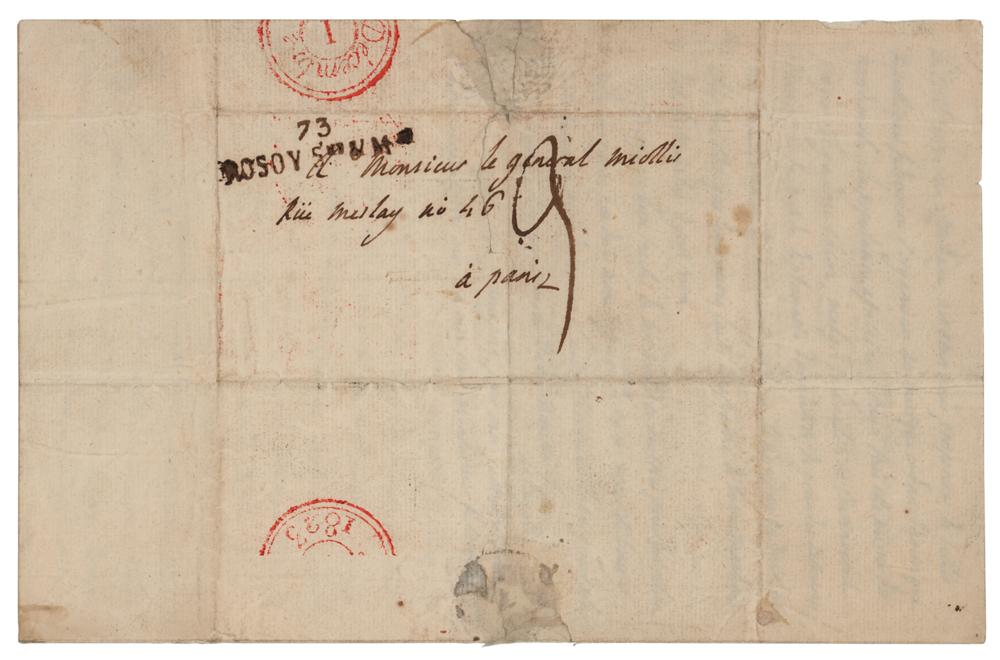 1
Décemb
73
ROSOY
A Monsieur le général miollis
Rüe meslay nò 46
à paris
1823